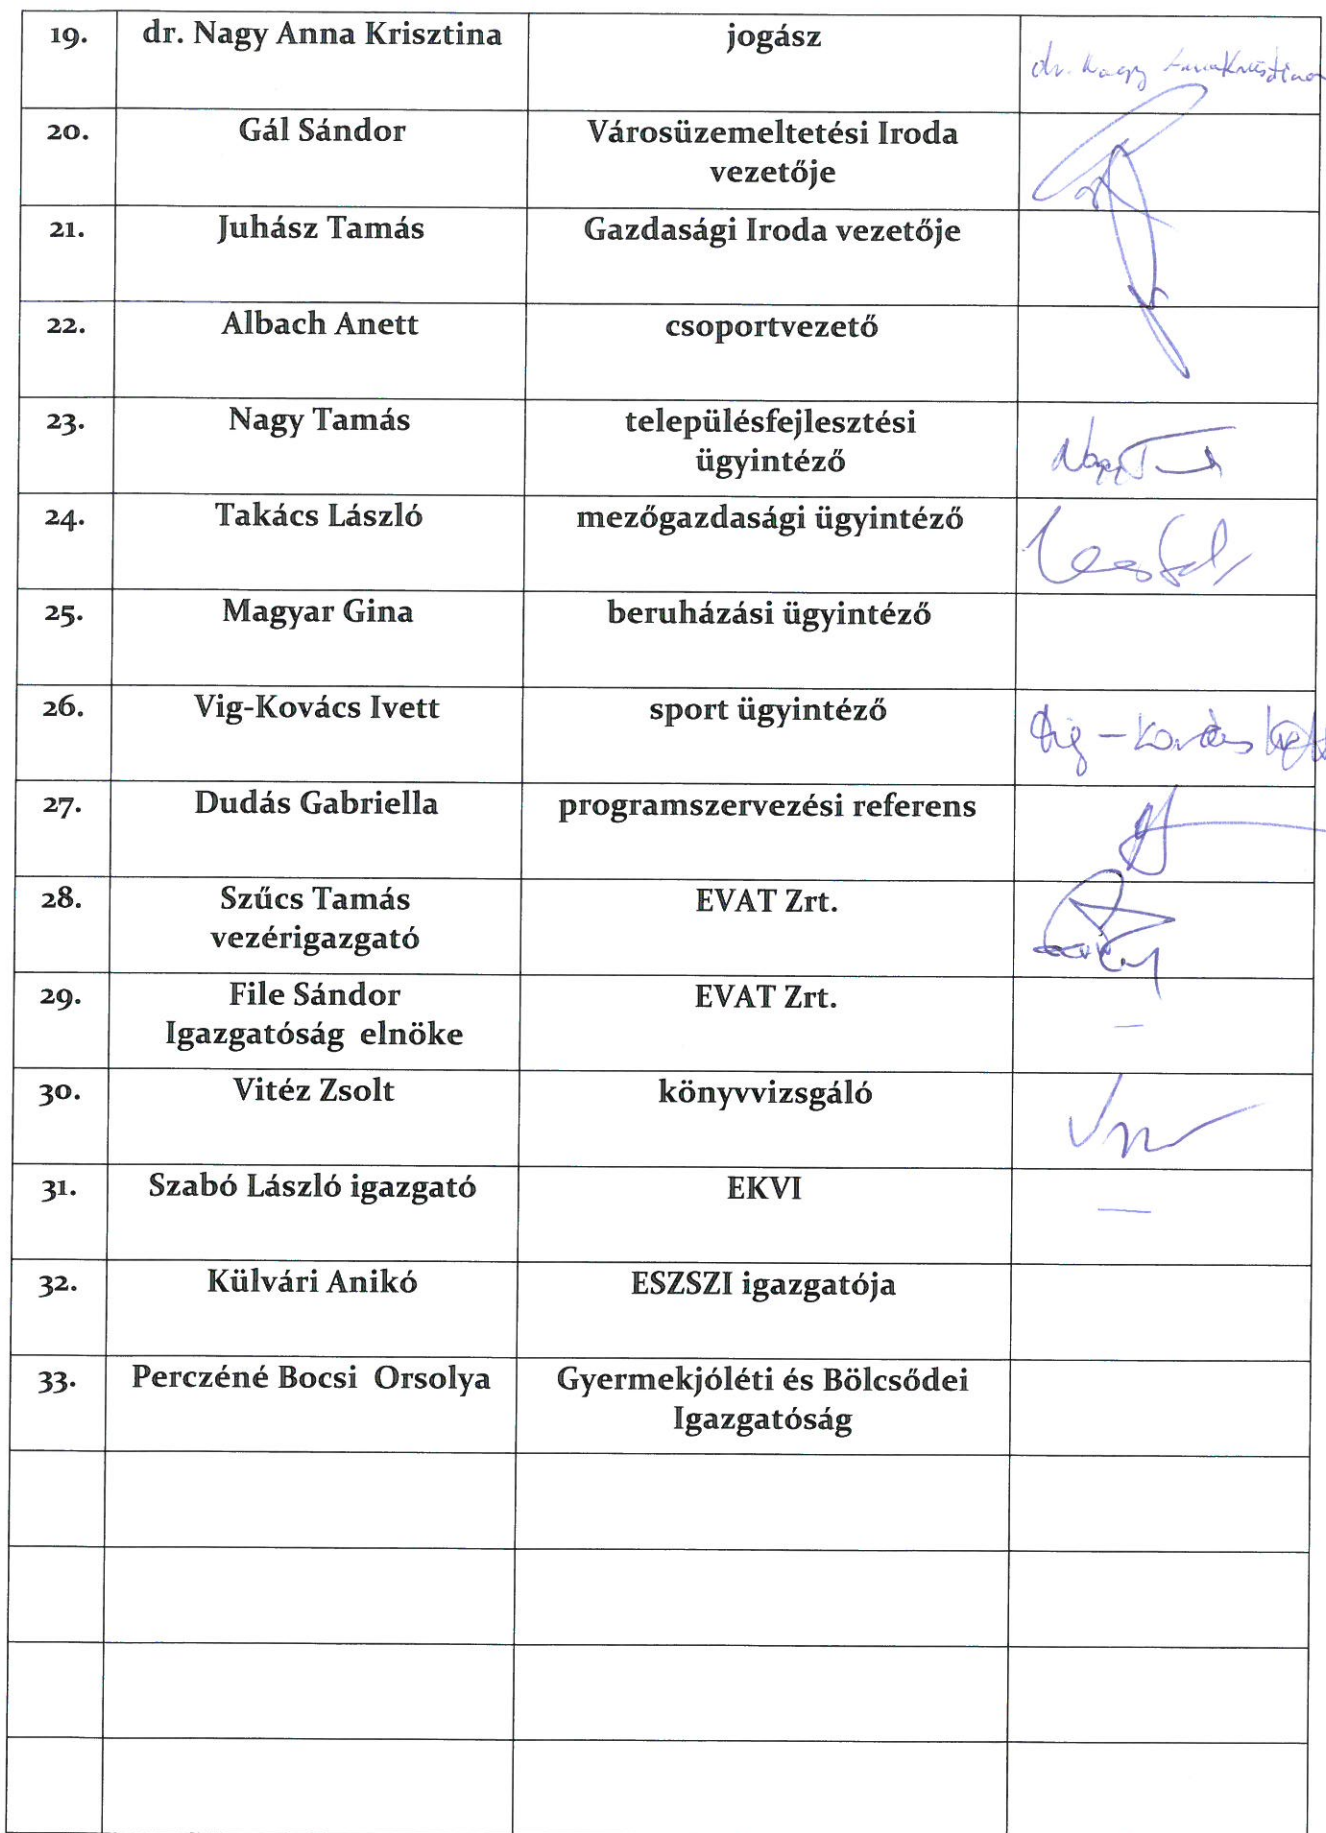 19. dr. Nagy Anna Krisztina jogász dr. Nagy Anna Krisztina
20. Gál Sándor Városüzemeltetési Iroda
vezetője
21. Juhász Tamás Gazdasági Iroda vezetője
22. Albach Anett csoportvezető
23. Nagy Tamás településfejlesztési
ügyintéző
24. Takács László mezőgazdasági ügyintéző
25. Magyar Gina beruházási ügyintéző
26. Vig-Kovács Ivett sport ügyintéző Vig-Kovács Ivett
27. Dudás Gabriella programszervezési referens
28. Szűcs Tamás EVAT Zrt.
vezérigazgató
29. File Sándor EVAT Zrt.
Igazgatóság elnöke –
30. Vitéz Zsolt könyvvizsgáló
31. Szabó László igazgató EKVI –
32. Külvári Anikó ESZSZI igazgatója
33. Perczéné Bocsi Orsolya Gyermekjóléti és Bölcsődei
Igazgatóság